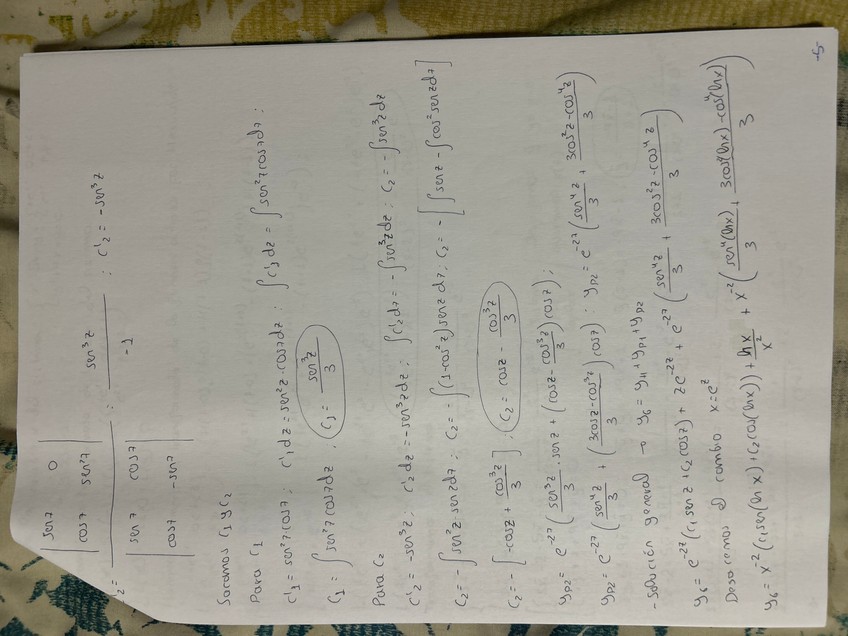 C'2 = | sen z 0 | cos z sen²z | / | sen z cos z | cos z -sen z | : sen³z / -1 : C'2 = -sen³z
Sacamos C1 y C2
Para C1
C'1 = sen²z·cos z ; C'1 dz = sen²z·cos z dz : ∫C'1 dz = ∫sen²z cos z dz :
C1 = ∫sen²z cos z dz ; C1 = sen³z/3
Para C2
C'2 = -sen³z ; C'2 dz = -sen³z dz ; ∫C'2 dz = -∫sen³z dz ; C2 = -∫sen³z dz
C2 = -∫sen²z·sen z dz ; C2 = -∫(1-cos²z) sen z dz ; C2 = -[∫sen z - ∫cos²z sen z dz]
C2 = -[-cos z + cos³z/3] ; C2 = cos z - cos³z/3
yp2 = e^-2z (sen³z/3 · sen z + (cos z - cos³z/3) cos z) ;
yp2 = e^-2z (sen⁴z/3 + (3cos z - cos³z/3) cos z) · yp2 = e^-2z (sen⁴z/3 + 3cos²z - cos⁴z/3)
- Solución general → yG = yH + yp1 + yp2
yG = e^-2z (C1 sen z + C2 cos z) + z e^-2z + e^-2z (sen⁴z/3 + 3cos²z - cos⁴z/3)
Desacemos el cambio x = e^z
yG = x^-2 (C1 sen(ln x) + C2 cos(ln x)) + ln x/x² + x^-2 (sen⁴(ln x)/3 + 3cos²(ln x) - cos⁴(ln x)/3)
-5-